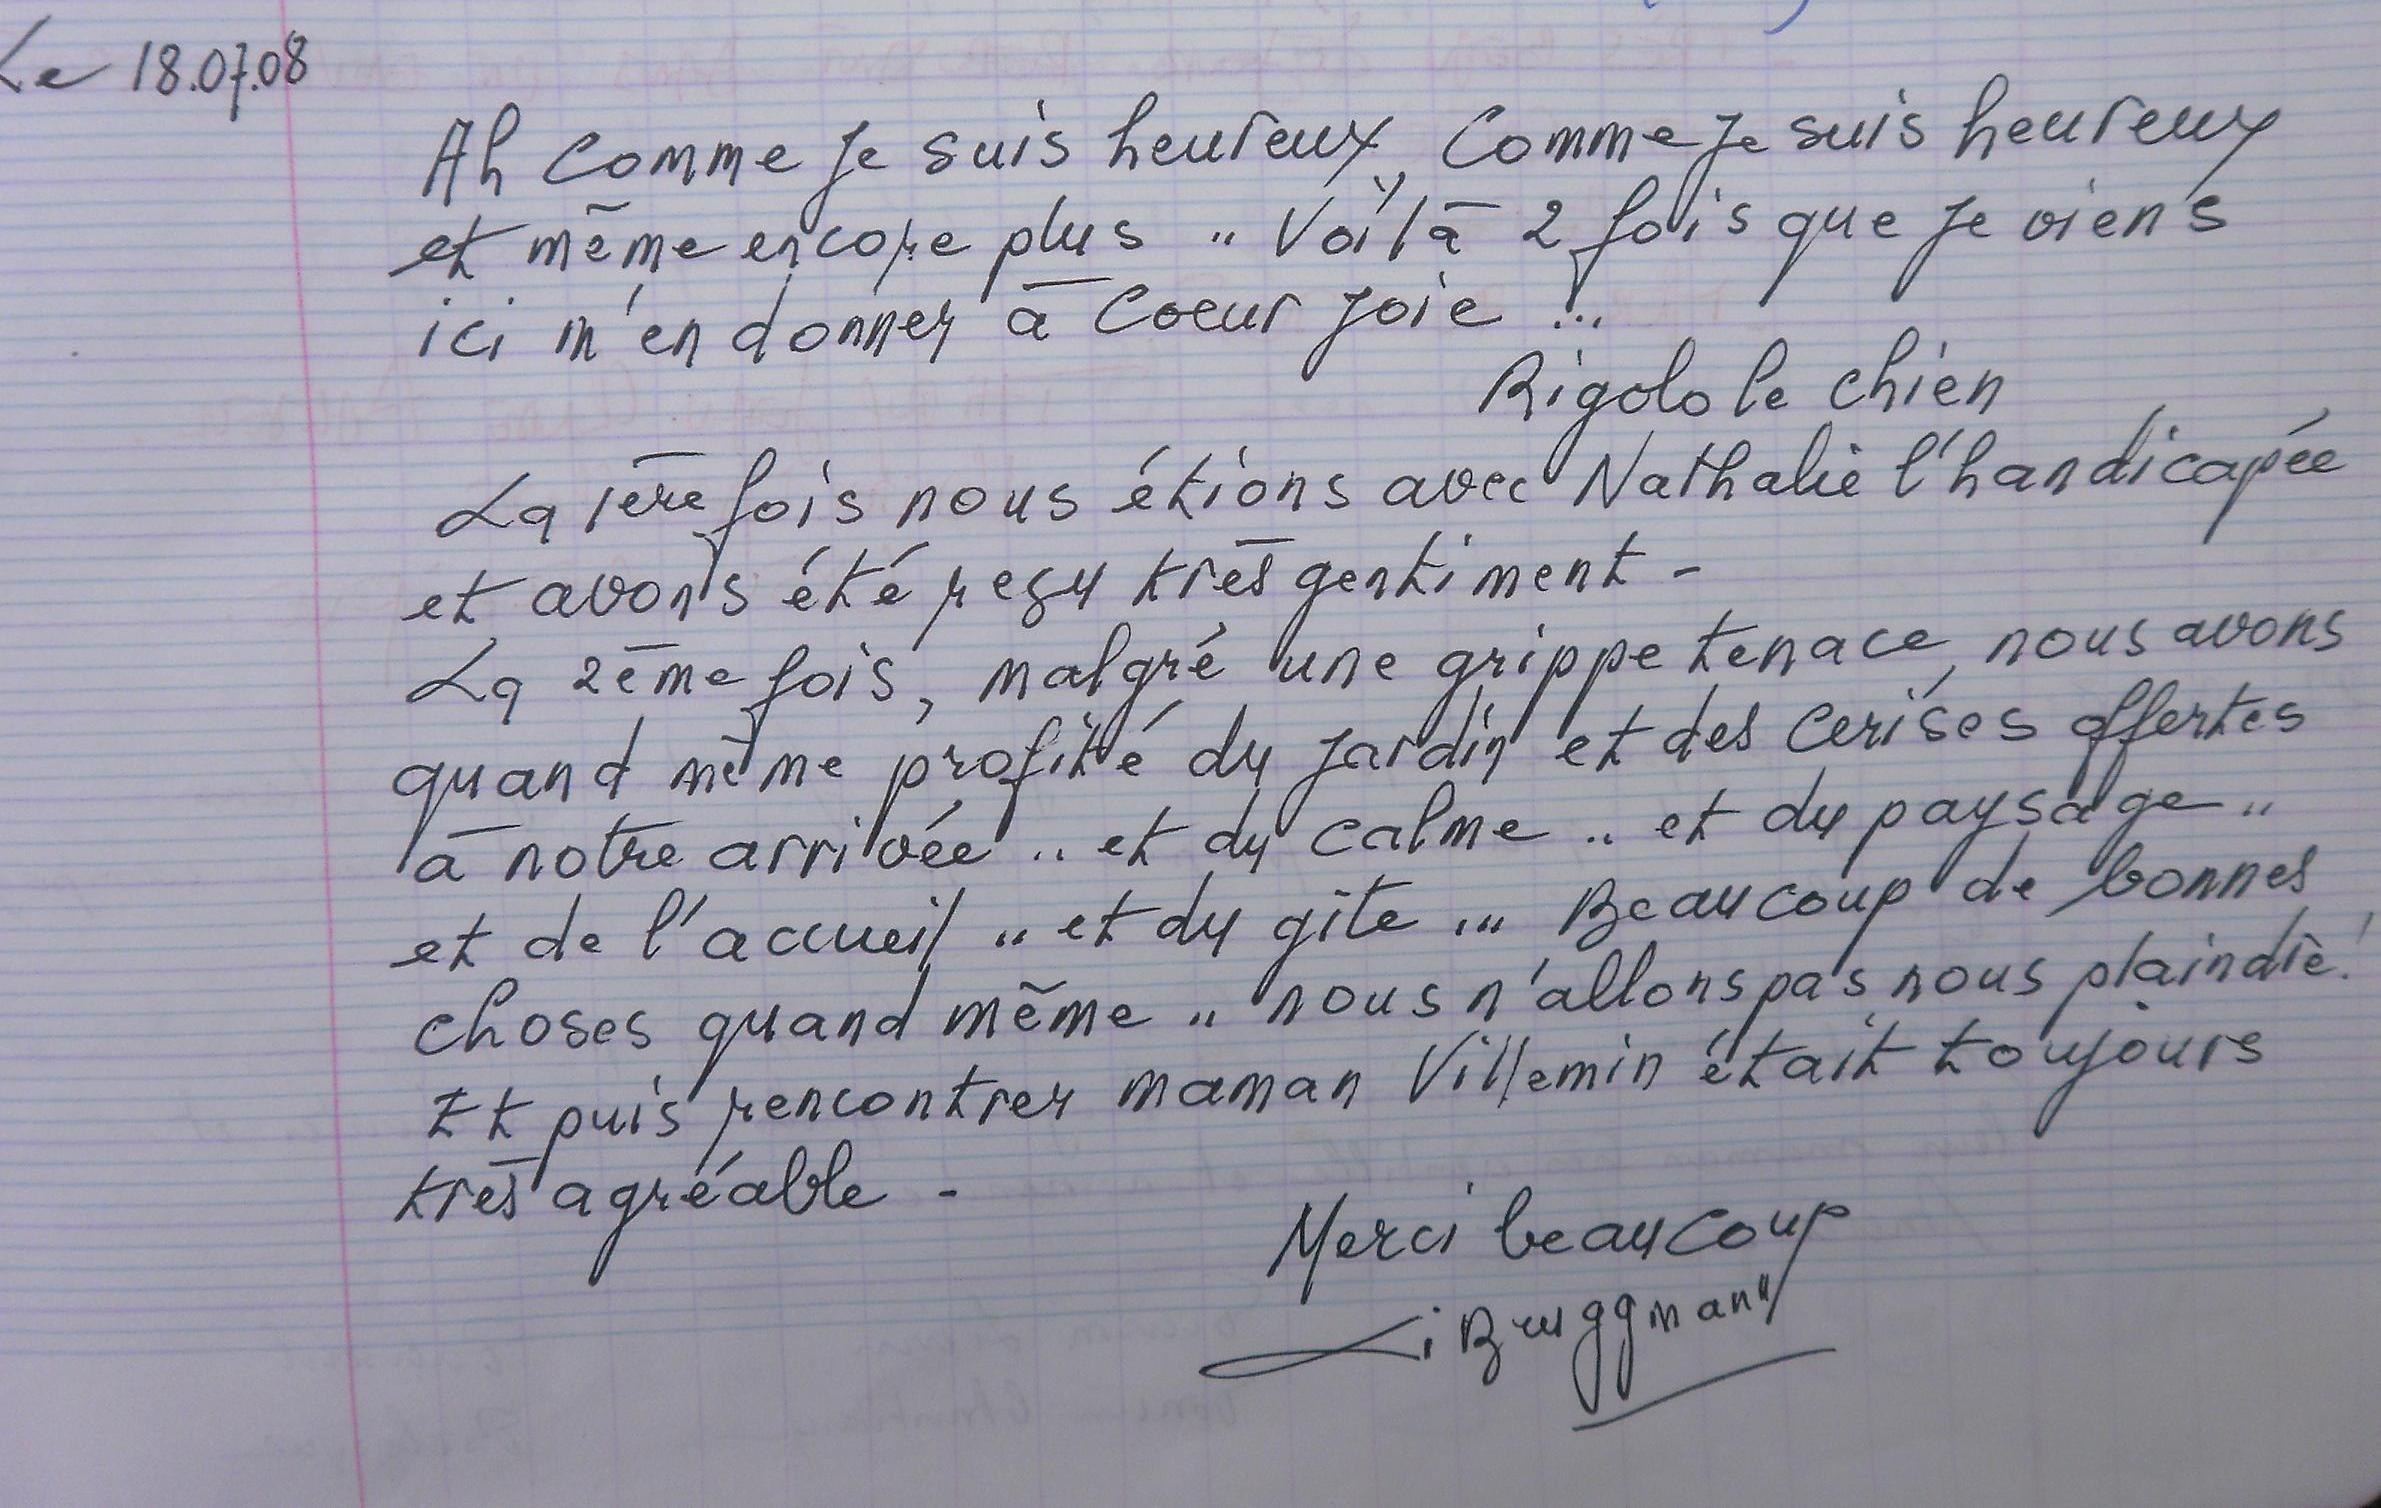 Le 18.07.08
Ah comme je suis heureux, comme je suis heureux
et même encore plus .. Voilà 2 fois que je viens
ici m'en donner à coeur joie !..
Rigolo le chien
La 1ère fois nous étions avec Nathalie l'handicapée
et avons été reçu très gentiment -
La 2ème fois, malgré une grippe tenace, nous avons
quand même profité du jardin et des cerises offertes
à notre arrivée .. et du calme .. et du paysage ..
et de l'accueil .. et du gîte ... Beaucoup de bonnes
choses quand même .. nous n'allons pas nous plaindre !
Et puis rencontrer maman Villemin était toujours
très agréable -
Merci beaucoup
Bruggmann